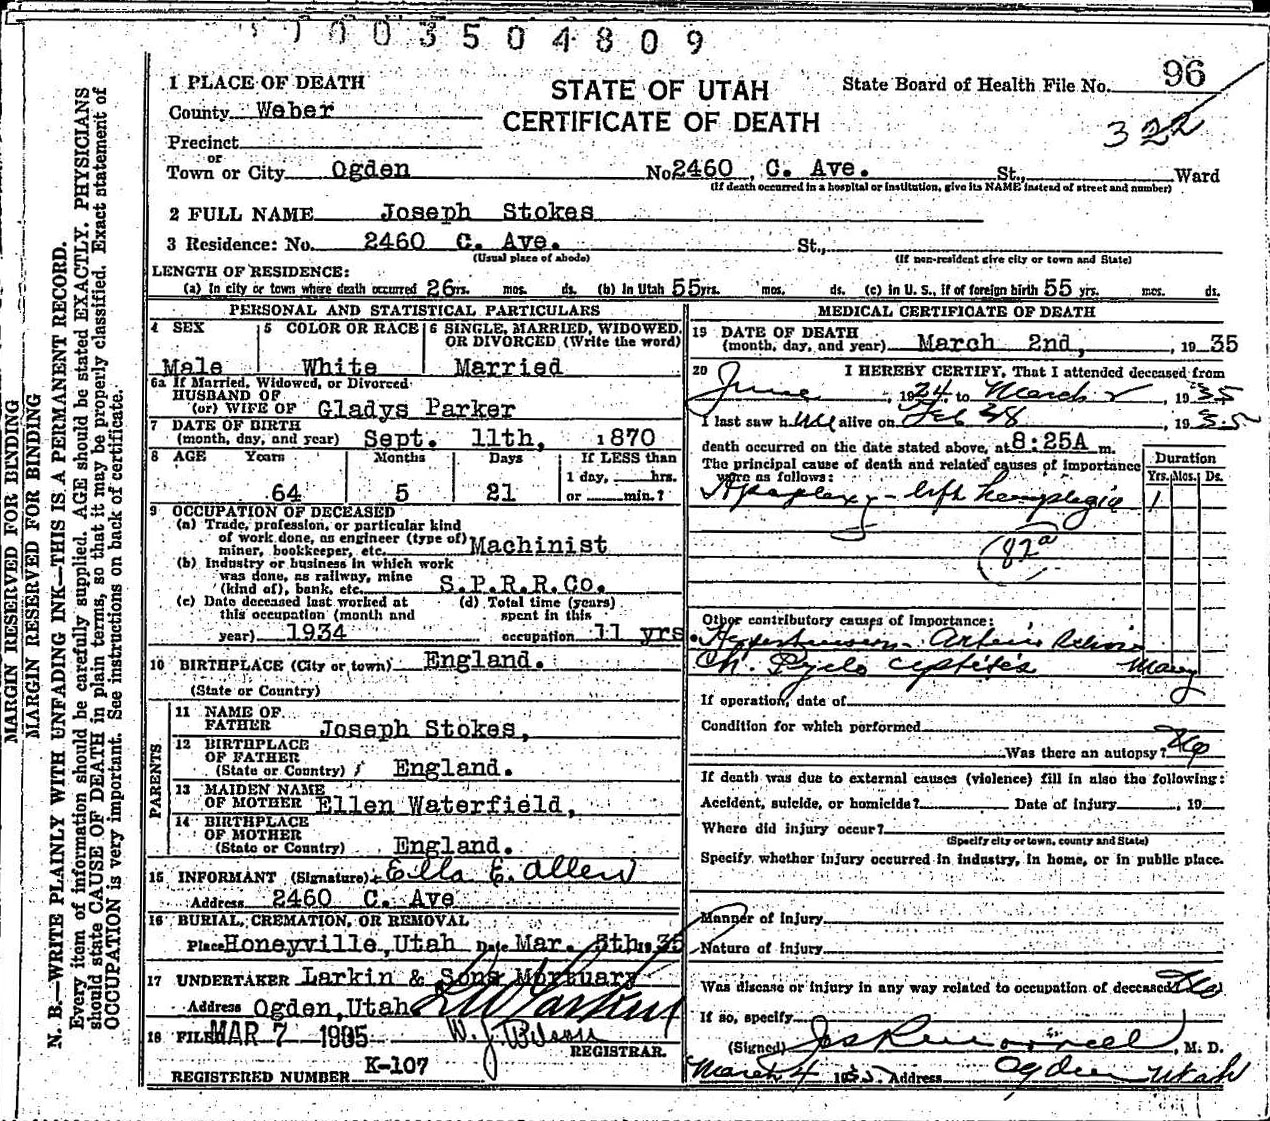 1003504809
1 PLACE OF DEATH
STATE OF UTAH
State Board of Health File No. 96
County Weber
CERTIFICATE OF DEATH
322
Precinct
or
Town or City Ogden No 2460 C. Ave. St., Ward
(If death occurred in a hospital or institution, give its NAME instead of street and number)
2 FULL NAME Joseph Stokes
3 Residence: No. 2460 C. Ave. St.,
(Usual place of abode) (If non-resident give city or town and State)
LENGTH OF RESIDENCE:
(a) In city or town where death occurred 26 yrs. mos. ds. (b) In Utah 55 yrs. mos. ds. (c) in U. S., if of foreign birth 55 yrs. mos. ds.
PERSONAL AND STATISTICAL PARTICULARS
4 SEX 5 COLOR OR RACE 6 SINGLE, MARRIED, WIDOWED, OR DIVORCED (Write the word)
Male White Married
6a If Married, Widowed, or Divorced
HUSBAND OF
(or) WIFE OF Gladys Parker
7 DATE OF BIRTH
(month, day, and year) Sept. 11th, 1870
8 AGE Years Months Days If LESS than
1 day, hrs.
64 5 21 or min.?
9 OCCUPATION OF DECEASED
(a) Trade, profession, or particular kind
of work done, as engineer (type of)
miner, bookkeeper, etc. Machinist
(b) Industry or business in which work
was done, as railway, mine
(kind of), bank, etc. S.P.R.R.Co.
(c) Date deceased last worked at (d) Total time (years)
this occupation (month and spent in this
year) 1934 occupation 11 yrs.
10 BIRTHPLACE (City or town) England.
(State or Country)
PARENTS
11 NAME OF
FATHER Joseph Stokes,
12 BIRTHPLACE
OF FATHER
(State or Country) England.
13 MAIDEN NAME
OF MOTHER Ellen Waterfield,
14 BIRTHPLACE
OF MOTHER
(State or Country) England.
15 INFORMANT (Signature) Ella E. Allen
Address 2460 C. Ave
16 BURIAL, CREMATION, OR REMOVAL
Place Honeyville, Utah Date Mar. 5th 19 35
17 UNDERTAKER Larkin & Sons Mortuary
Address Ogden, Utah
18 FILED MAR 7 1935
REGISTRAR.
REGISTERED NUMBER K-107
MEDICAL CERTIFICATE OF DEATH
19 DATE OF DEATH
(month, day, and year) March 2nd, , 19 35
20 I HEREBY CERTIFY, That I attended deceased from
June , 1924 to March 2 , 19 35
I last saw h im alive on Feb 28 , 19 35
death occurred on the date stated above, at 8:25A m.
The principal cause of death and related causes of importance
were as follows:
Duration
Yrs. Mos. Ds.
Apoplexy - left hemplegia 1
82a
Other contributory causes of importance:
Hypertension - Arterio
Ch. Pyelo cystitis Many
If operation, date of
Condition for which performed
Was there an autopsy? No
If death was due to external causes (violence) fill in also the following:
Accident, suicide, or homicide? Date of injury , 19
Where did injury occur?
(Specify city or town, county and State)
Specify whether injury occurred in industry, in home, or in public place.
Manner of injury
Nature of injury
Was disease or injury in any way related to occupation of deceased No
If so, specify
(Signed) , M. D.
March 4 1935 Address Ogden Utah
MARGIN RESERVED FOR BINDING
MARGIN RESERVED FOR BINDING
N. B.—WRITE PLAINLY WITH UNFADING INK—THIS IS A PERMANENT RECORD.
Every item of information should be carefully supplied. AGE should be stated EXACTLY. PHYSICIANS
should state CAUSE OF DEATH in plain terms, so that it may be properly classified. Exact statement of
OCCUPATION is very important. See instructions on back of certificate.